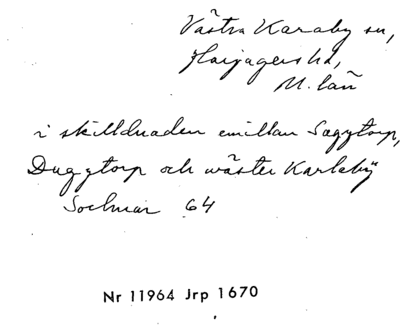 Västra Karaby sn,
Harjagers hd,
M. län
i skillduaden emillan Saxytorp,
Dagytorp och wäster Karlaby
Sochnar 64
Nr 11964 Jrp 1670